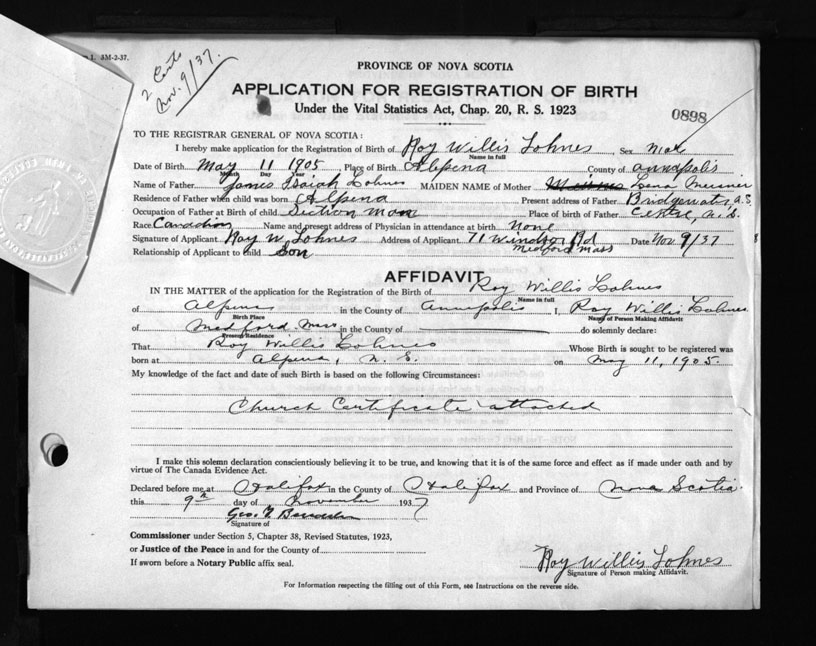 1. 3M-2-37.
2 Certs
Nov. 9/37.
PROVINCE OF NOVA SCOTIA
APPLICATION FOR REGISTRATION OF BIRTH
Under the Vital Statistics Act, Chap. 20, R. S. 1923
0898
TO THE REGISTRAR GENERAL OF NOVA SCOTIA:
I hereby make application for the Registration of Birth of Roy Willis Lohnes Sex male
Name in full
Date of Birth May 11 1905 Place of Birth Alpena County of Annapolis
Month Day Year
Name of Father James Isaiah Lohnes MAIDEN NAME of Mother Lena
Residence of Father when child was born Alpena Present address of Father Bridgewater, N.S.
Occupation of Father at Birth of child Section Man Place of birth of Father N.S.
Race Canadian Name and present address of Physician in attendance at birth None
Signature of Applicant Roy W. Lohnes Address of Applicant 71 Windsor Rd Date Nov 9/37
Medford Mass
Relationship of Applicant to child Son
AFFIDAVIT
IN THE MATTER of the application for the Registration of the Birth of Roy Willis Lohnes
Name in full
of Alpena in the County of Annapolis I, Roy Willis Lohnes
Birth Place Name of Person Making Affidavit
of Medford. Mass in the County of do solemnly declare:
Present Residence
That Roy Willis Lohnes Whose Birth is sought to be registered was
born at Alpena, N. S. on May 11, 1905.
My knowledge of the fact and date of such Birth is based on the following Circumstances:
Church Certificate attached
I make this solemn declaration conscientiously believing it to be true, and knowing that it is of the same force and effect as if made under oath and by
virtue of The Canada Evidence Act.
Declared before me at Halifax in the County of Halifax and Province of Nova Scotia.
this 9th day of November 1937
Geo.
Signature of
Commissioner under Section 5, Chapter 38, Revised Statutes, 1923,
or Justice of the Peace in and for the County of
If sworn before a Notary Public affix seal.
Roy Willis Lohnes
Signature of Person making Affidavit.
For Information respecting the filling out of this Form, see Instructions on the reverse side.